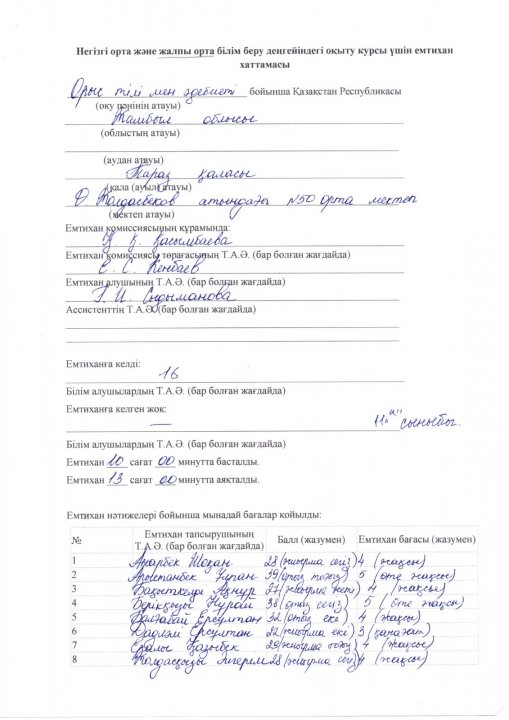 Негізгі орта және жалпы орта білім беру деңгейіндегі оқыту курсы үшін емтихан
хаттамасы
Орыс тілі мен әдебиеті бойынша Қазақстан Республикасы
(оқу пәнінің атауы)
Жамбыл облысы
(облыстың атауы)
(аудан атауы)
Тараз қаласы
(қала (ауыл) атауы)
Ә. Жолдасбеков атындағы №50 орта мектеп
(мектеп атауы)
Емтихан комиссиясының құрамында:
Қ. Қасымбаева
Емтихан комиссиясы төрағасының Т.А.Ә. (бар болған жағдайда)
Е. С. Кенбаев
Емтихан алушының Т.А.Ә. (бар болған жағдайда)
Г. И. Сыдыманова
Ассистенттің Т.А.Ә. (бар болған жағдайда)
Емтиханға келді:
16
Білім алушылардың Т.А.Ә. (бар болған жағдайда)
Емтиханға келген жоқ:
— 11 "а" сыныбы.
Білім алушылардың Т.А.Ә. (бар болған жағдайда)
Емтихан 10 сағат 00 минутта басталды.
Емтихан 13 сағат 00 минутта аяқталды.
Емтихан нәтижелері бойынша мынадай бағалар қойылды:
№ Емтихан тапсырушының Т.А.Ә. (бар болған жағдайда) Балл (жазумен) Емтихан бағасы (жазумен)
1 Анарбек Шоқан 28 (жиырма сегіз) 4 (жақсы)
2 Арыстанбек Нұрпан 39 (отыз тоғыз) 5 (өте жақсы)
3 Бақыткелді Ақнұр 27 (жиырма жеті) 4 (жақсы)
4 Берікқызы Нұрай 38 (отыз сегіз) 5 (өте жақсы)
5 Балтабай Ерсұлтан 32 (отыз екі) 4 (жақсы)
6 Ерсұлтан 22 (жиырма екі) 3 (қанағат)
7 Ералы Қазыбек 29 (жиырма тоғыз) 4 (жақсы)
8 Жолдасқызы Әйгерім 28 (жиырма сегіз) 4 (жақсы)